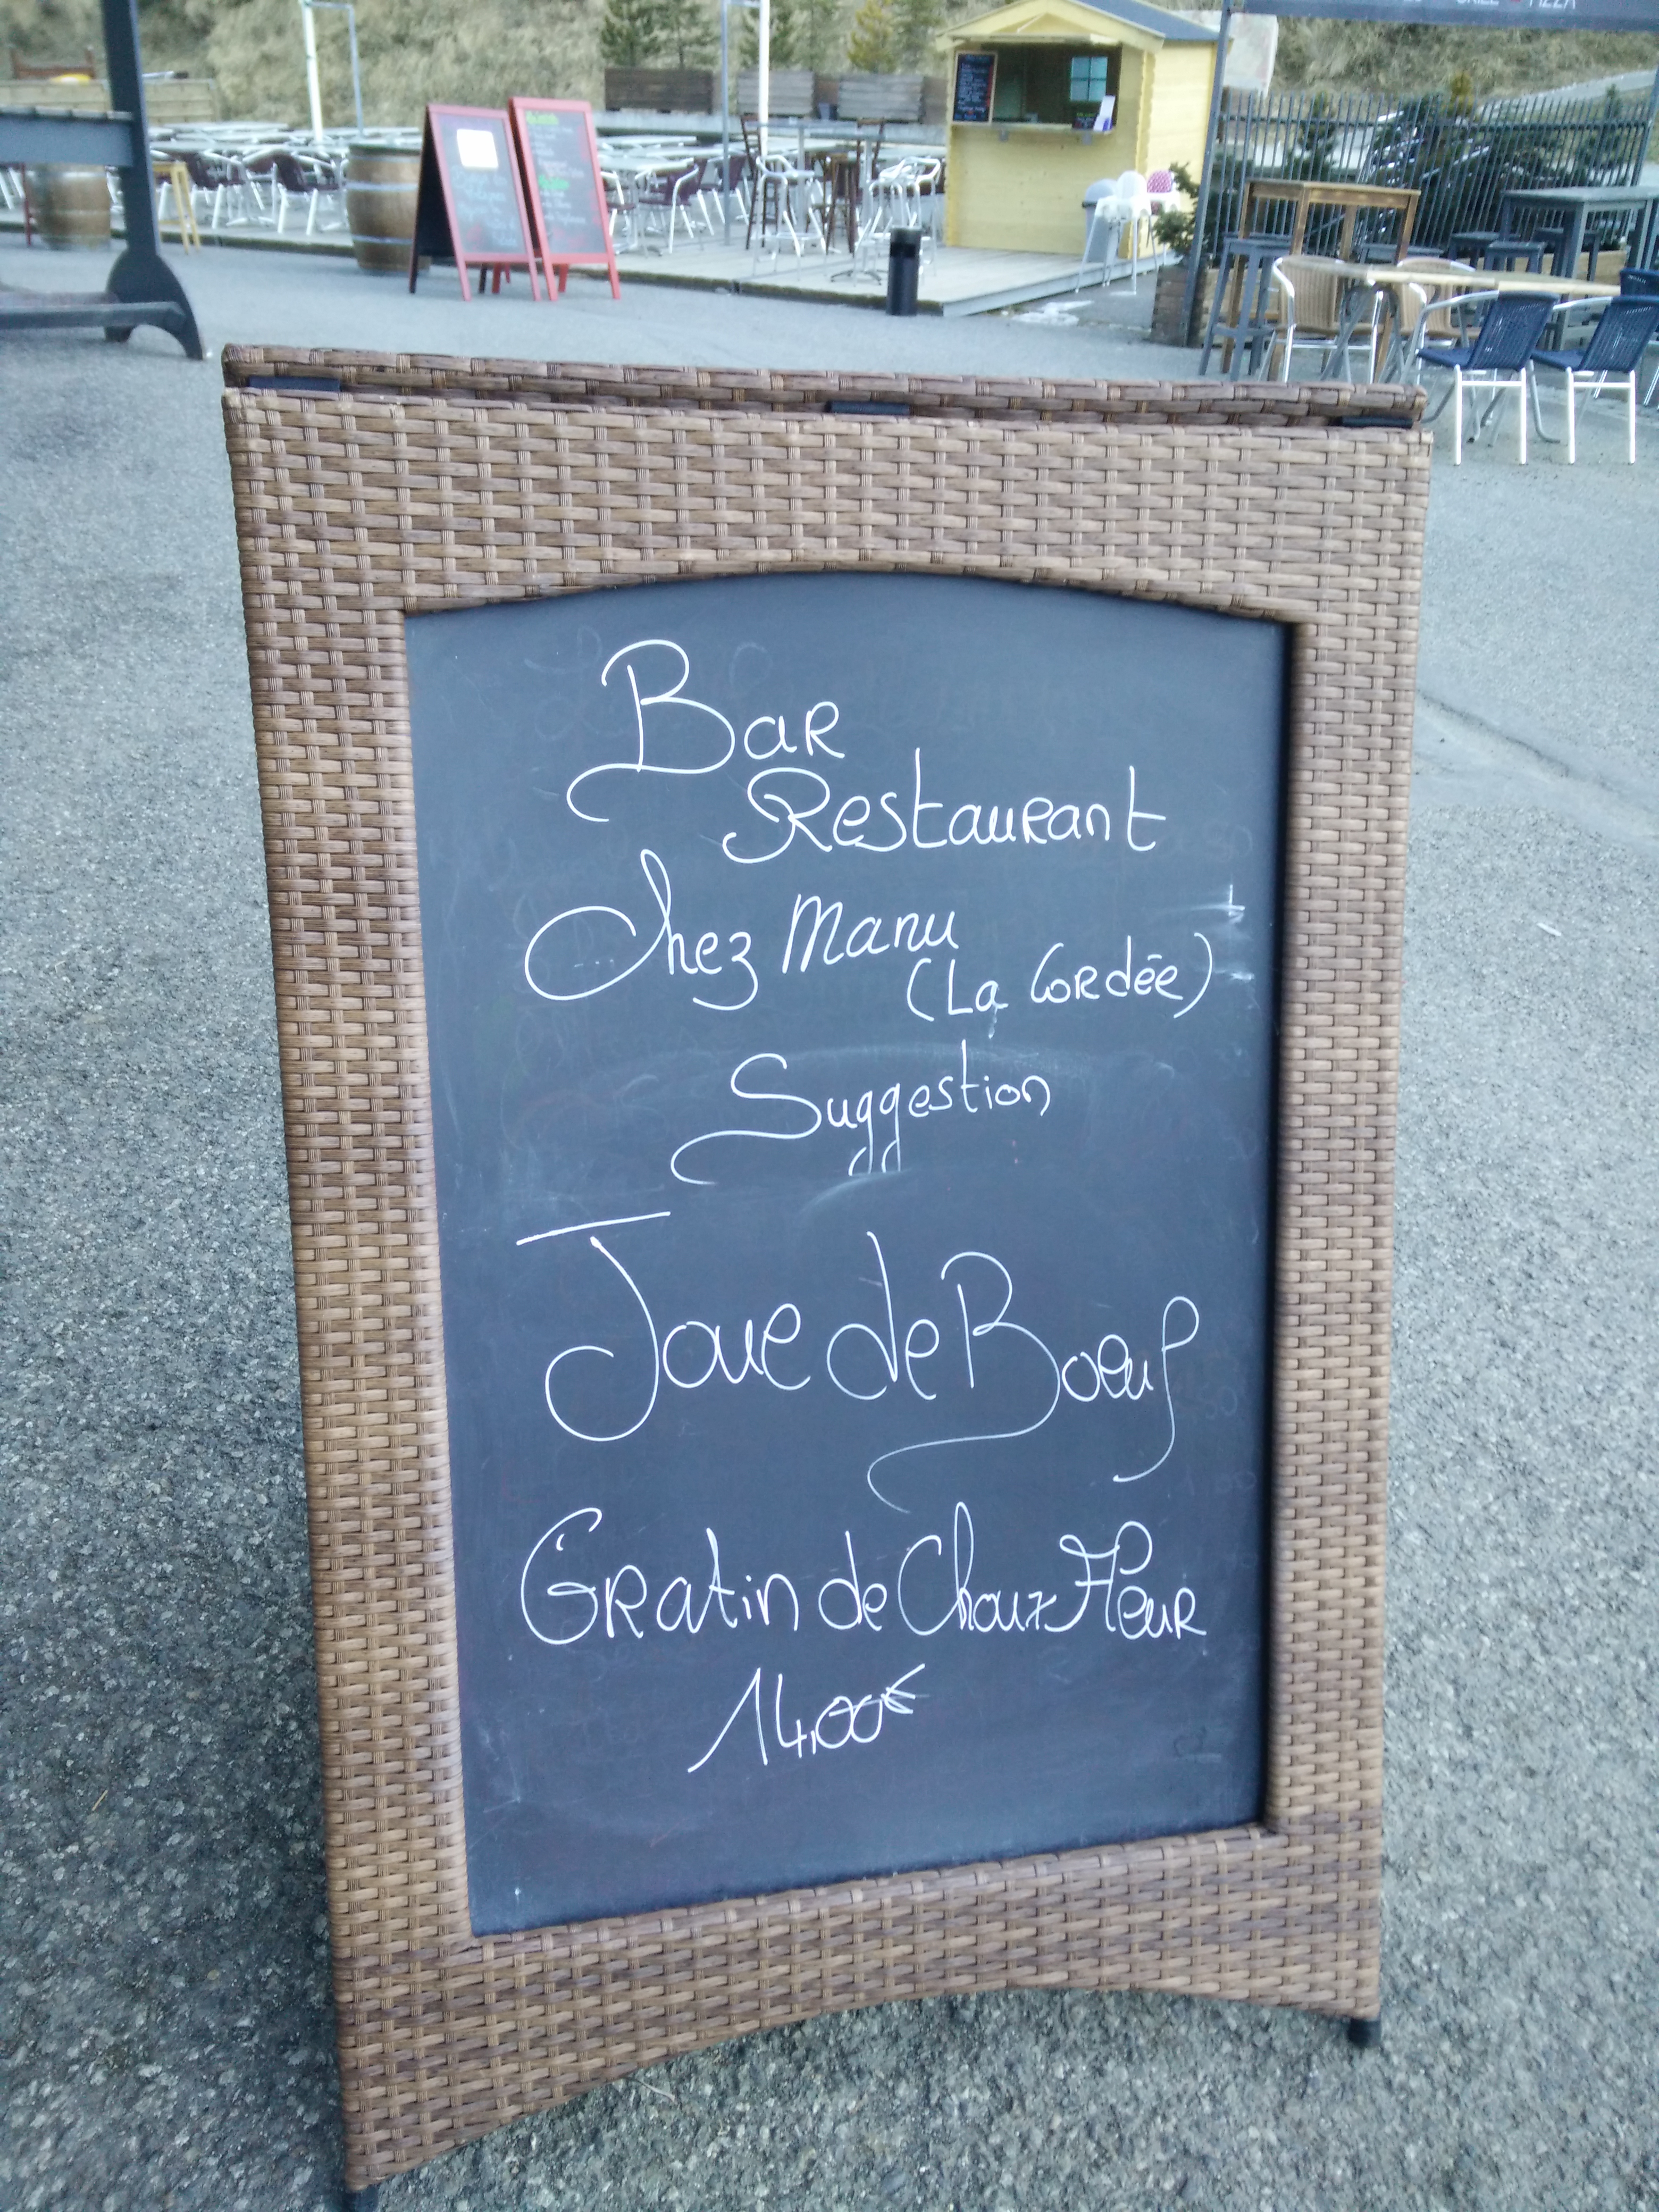 PIZZA
Bar
Restaurant
Chez Manu
(La Cordée)
Suggestion
Joue de Boeuf
Gratin de Choux Fleur
14,00€